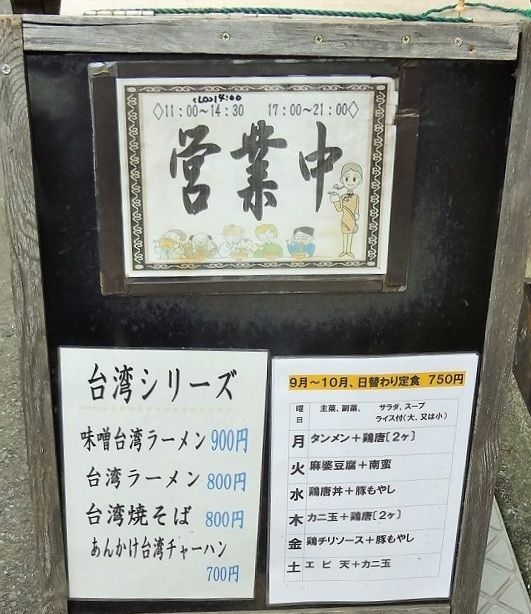 (LO)14:00
◇11:00〜14:30　17:00〜21:00◇
営業中
台湾シリーズ
味噌台湾ラーメン 900円
台湾ラーメン 800円
台湾焼そば 800円
あんかけ台湾チャーハン
700円
9月〜10月、日替わり定食 750円
曜日　主菜、副菜、　サラダ、スープ
ライス付(大、又は小)
月 タンメン+鶏唐[2ヶ]
火 麻婆豆腐+南蛮
水 鶏唐丼+豚もやし
木 カニ玉+鶏唐[2ヶ]
金 鶏チリソース+豚もやし
土 エビ天+カニ玉